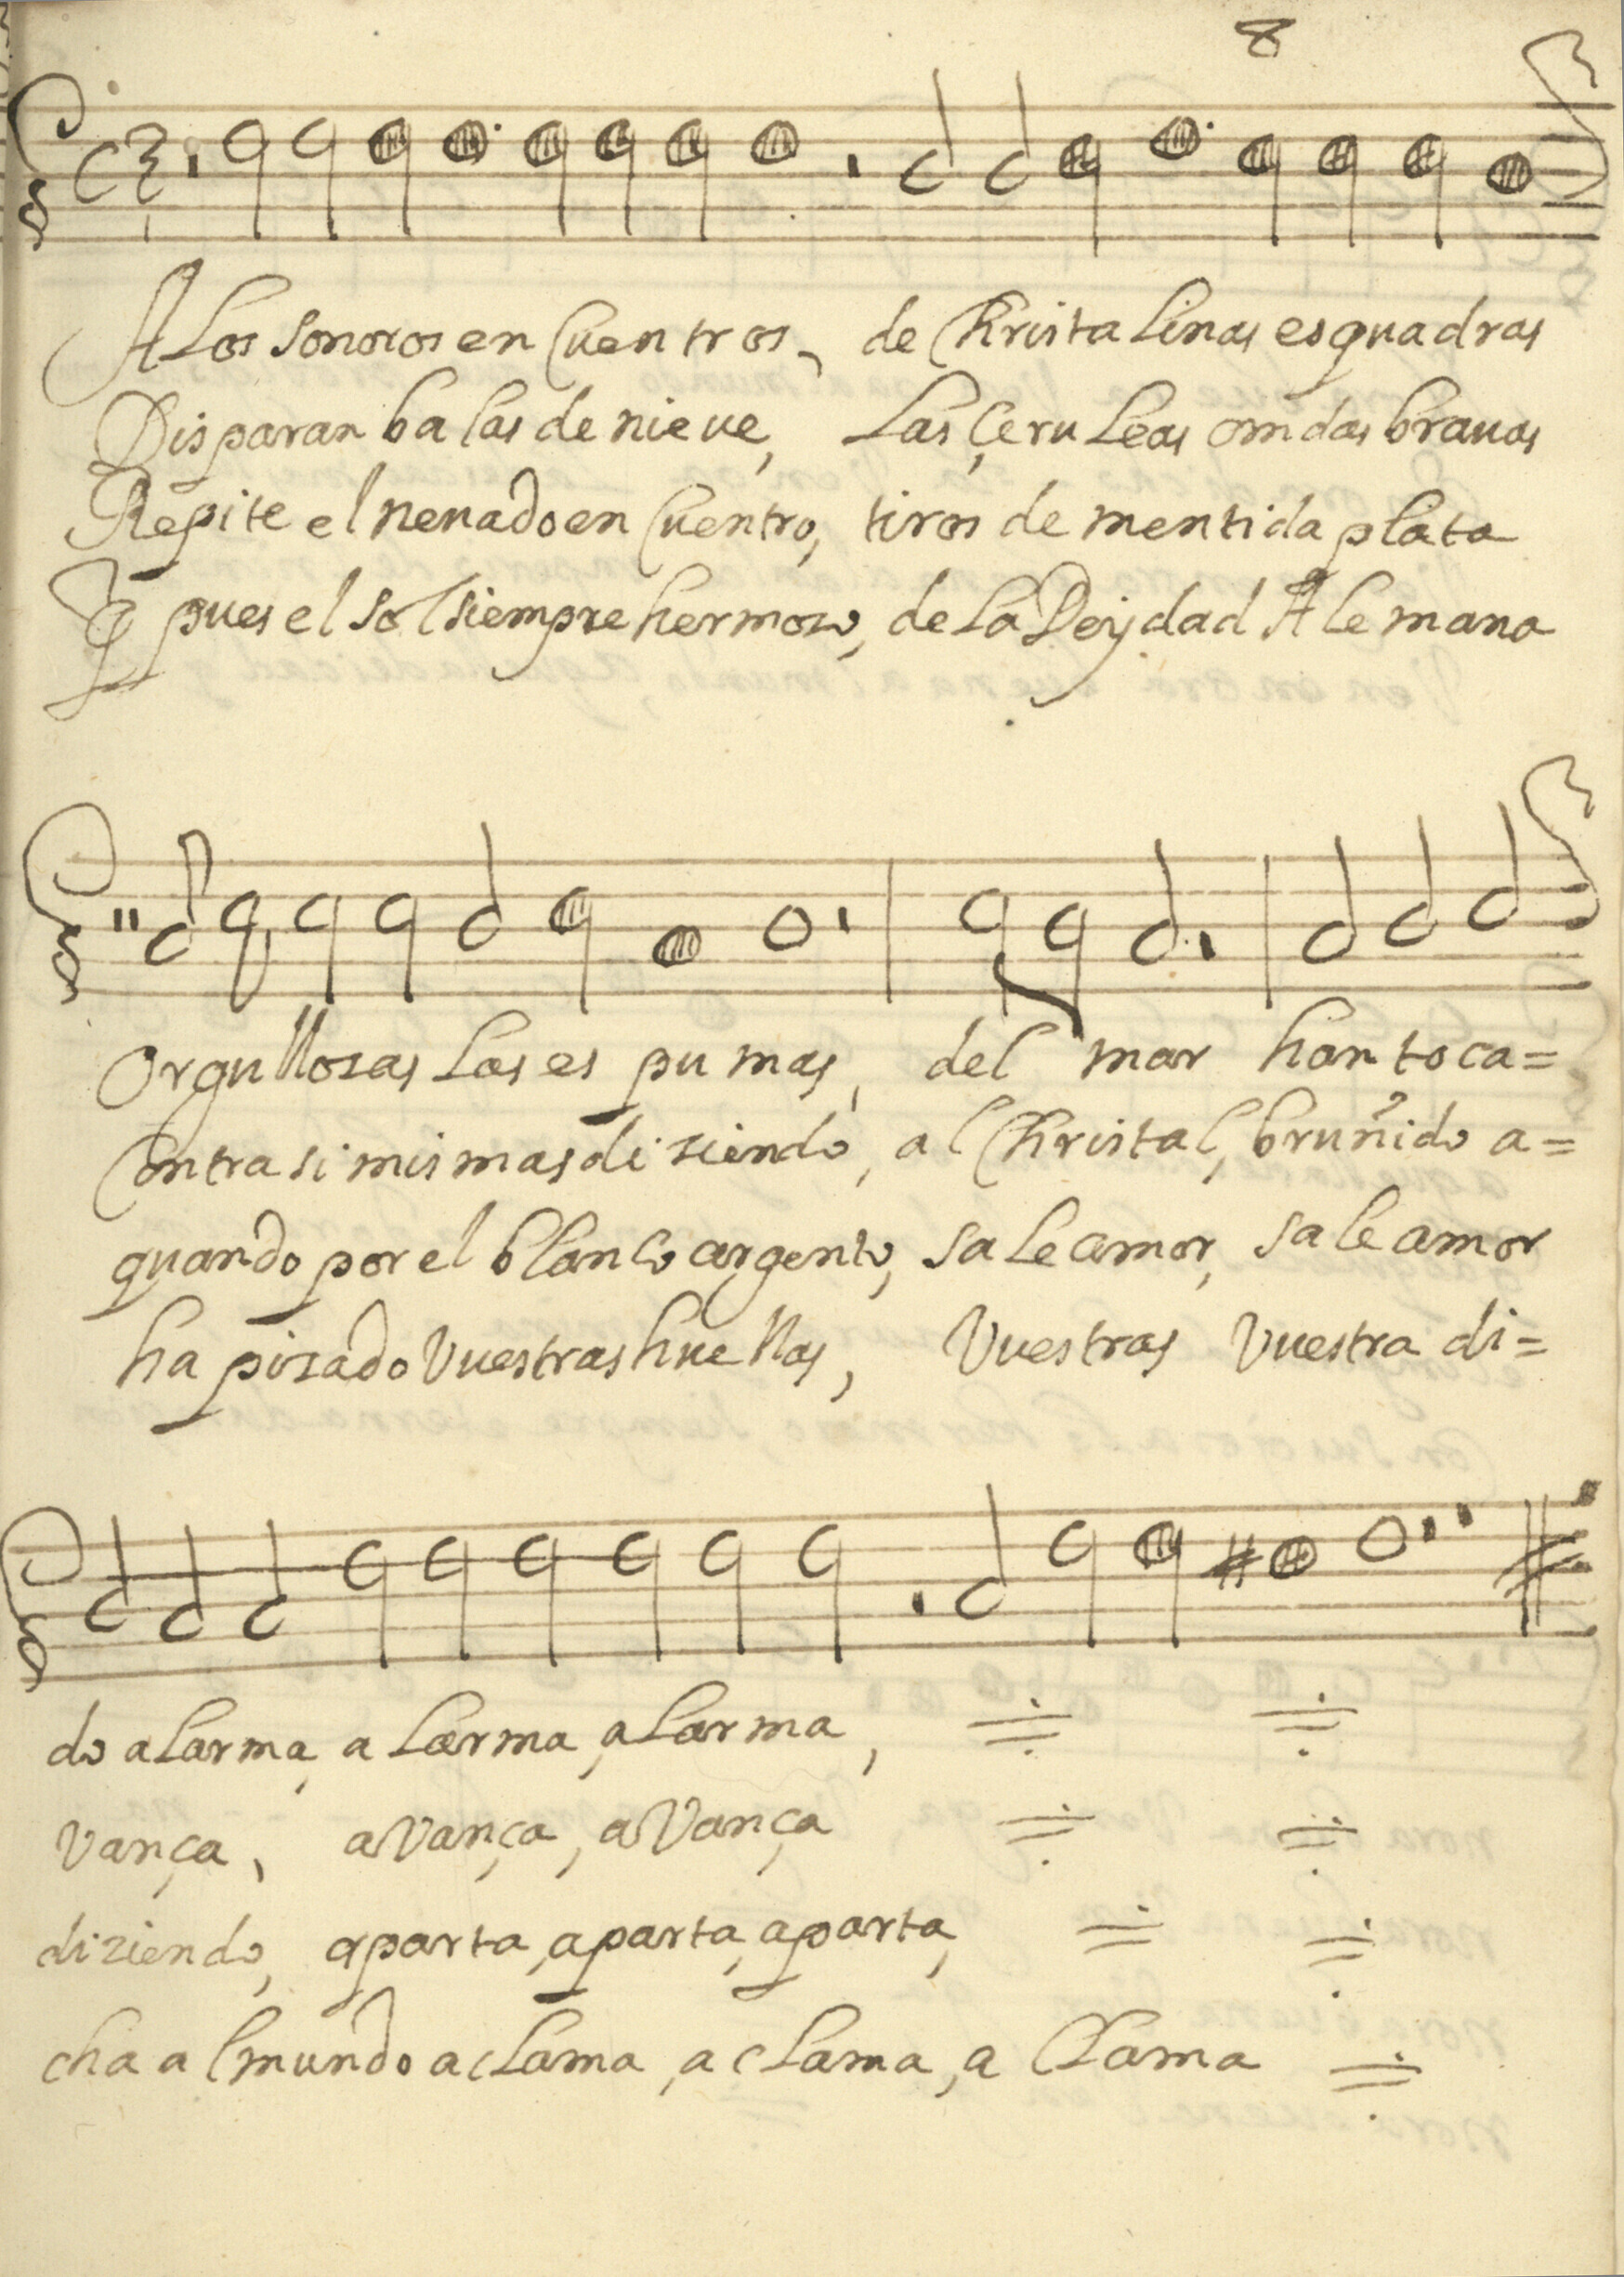 8
A Los sonoros en Cuentros, de Christalinas esquadras
Disparan balas de nieue, Las çeruleas ondas brauas
Repite el neuado en Cuentro, tiros de mentida plata
Y pues el sol siempre hermozo, de la Deydad Alemana
Orgullozas Las espumas, del mar han toca=
Contra si mismas diziendo, al Christal, bruñido a=
quando por el blanco argento, sale amor, sale amor
ha pizado Vuestras huellas, Vuestras Vuestra di=
do a Larma, a Larma, a Larma,
Vança, a Vança, a Vança
diziendo, aparta, aparta, aparta,
cha al mundo aclama, a clama, a Clama